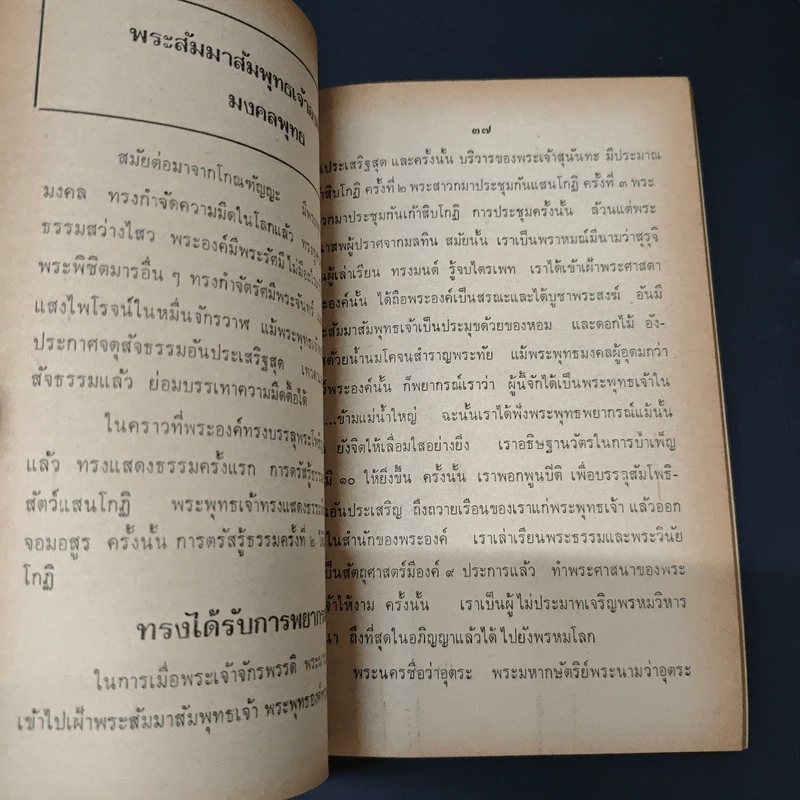 พระสัมมาสัมพุทธเจ้า
มงคลพุทธ
สมัยต่อมาจากโกณฑัญญะ
มงคล ทรงกำจัดความมืดในโลกแล้ว
ธรรมสว่างไสว พระองค์มีพระรัศมีไม่มี
พระพิชิตมารอื่น ๆ ทรงกำจัดรัศมีพระจันทร์
แสงไพโรจน์ในหมื่นจักรวาฬ แม้พระพุทธเจ้า
ประกาศจตุสัจธรรมอันประเสริฐสุด
สัจธรรมแล้ว ย่อมบรรเทาความมืดตื้อได้
ในคราวที่พระองค์ทรงบรรลุพระโพธิ
แล้ว ทรงแสดงธรรมครั้งแรก การตรัสรู้ธรรม
สัตว์แสนโกฏิ พระพุทธเจ้าทรงแสดงธรรม
จอมอสูร ครั้งนั้น การตรัสรู้ธรรมครั้งที่ ๒
โกฏิ
ทรงได้รับการพยากร
ในการเมื่อพระเจ้าจักรพรรดิ
เข้าไปเฝ้าพระสัมมาสัมพุทธเจ้า
๓๗
ประเสริฐสุด และครั้งนั้น บริวารของพระเจ้าสุนันทะ มีประมาณ
สิบโกฏิ ครั้งที่ ๒ พระสาวกมาประชุมกันแสนโกฏิ ครั้งที่ ๓ พระ
วกมาประชุมกันเก้าสิบโกฏิ การประชุมครั้งนั้น ล้วนแต่พระ
าสพผู้ปราศจากมลทิน สมัยนั้น เราเป็นพราหมณ์มีนามว่าสุรุจิ
ผู้เล่าเรียน ทรงมนต์ รู้จบไตรเพท เราได้เข้าเฝ้าพระศาสดา
ะองค์นั้น ได้ถือพระองค์เป็นสรณะและได้บูชาพระสงฆ์ อันมี
ะสัมมาสัมพุทธเจ้าเป็นประมุขด้วยของหอม และดอกไม้ อัง-
ด้วยน้ำนมโคจนสำราญพระทัย แม้พระพุทธมงคลผู้อุดมกว่า
พระองค์นั้น ก็พยากรณ์เราว่า ผู้นี้จักได้เป็นพระพุทธเจ้าใน
...ข้ามแม่น้ำใหญ่ ฉะนั้นเราได้ฟังพระพุทธพยากรณ์แม้นั้น
ยังจิตให้เลื่อมใสอย่างยิ่ง เราอธิษฐานวัตรในการบำเพ็ญ
มี ๑๐ ให้ยิ่งขึ้น ครั้งนั้น เราพอกพูนปีติ เพื่อบรรลุสัมโพธิ-
อันประเสริฐ ถึงถวายเรือนของเราแก่พระพุทธเจ้า แล้วออก
ในสำนักของพระองค์ เราเล่าเรียนพระธรรมและพระวินัย
ป็นสัตถุศาสตร์มีองค์ ๙ ประการแล้ว ทำพระศาสนาของพระ
จ้าให้งาม ครั้งนั้น เราเป็นผู้ไม่ประมาทเจริญพรหมวิหาร
นา ถึงที่สุดในอภิญญาแล้วได้ไปยังพรหมโลก
พระนครชื่อว่าอุตระ พระมหากษัตริย์พระนามว่าอุตระ